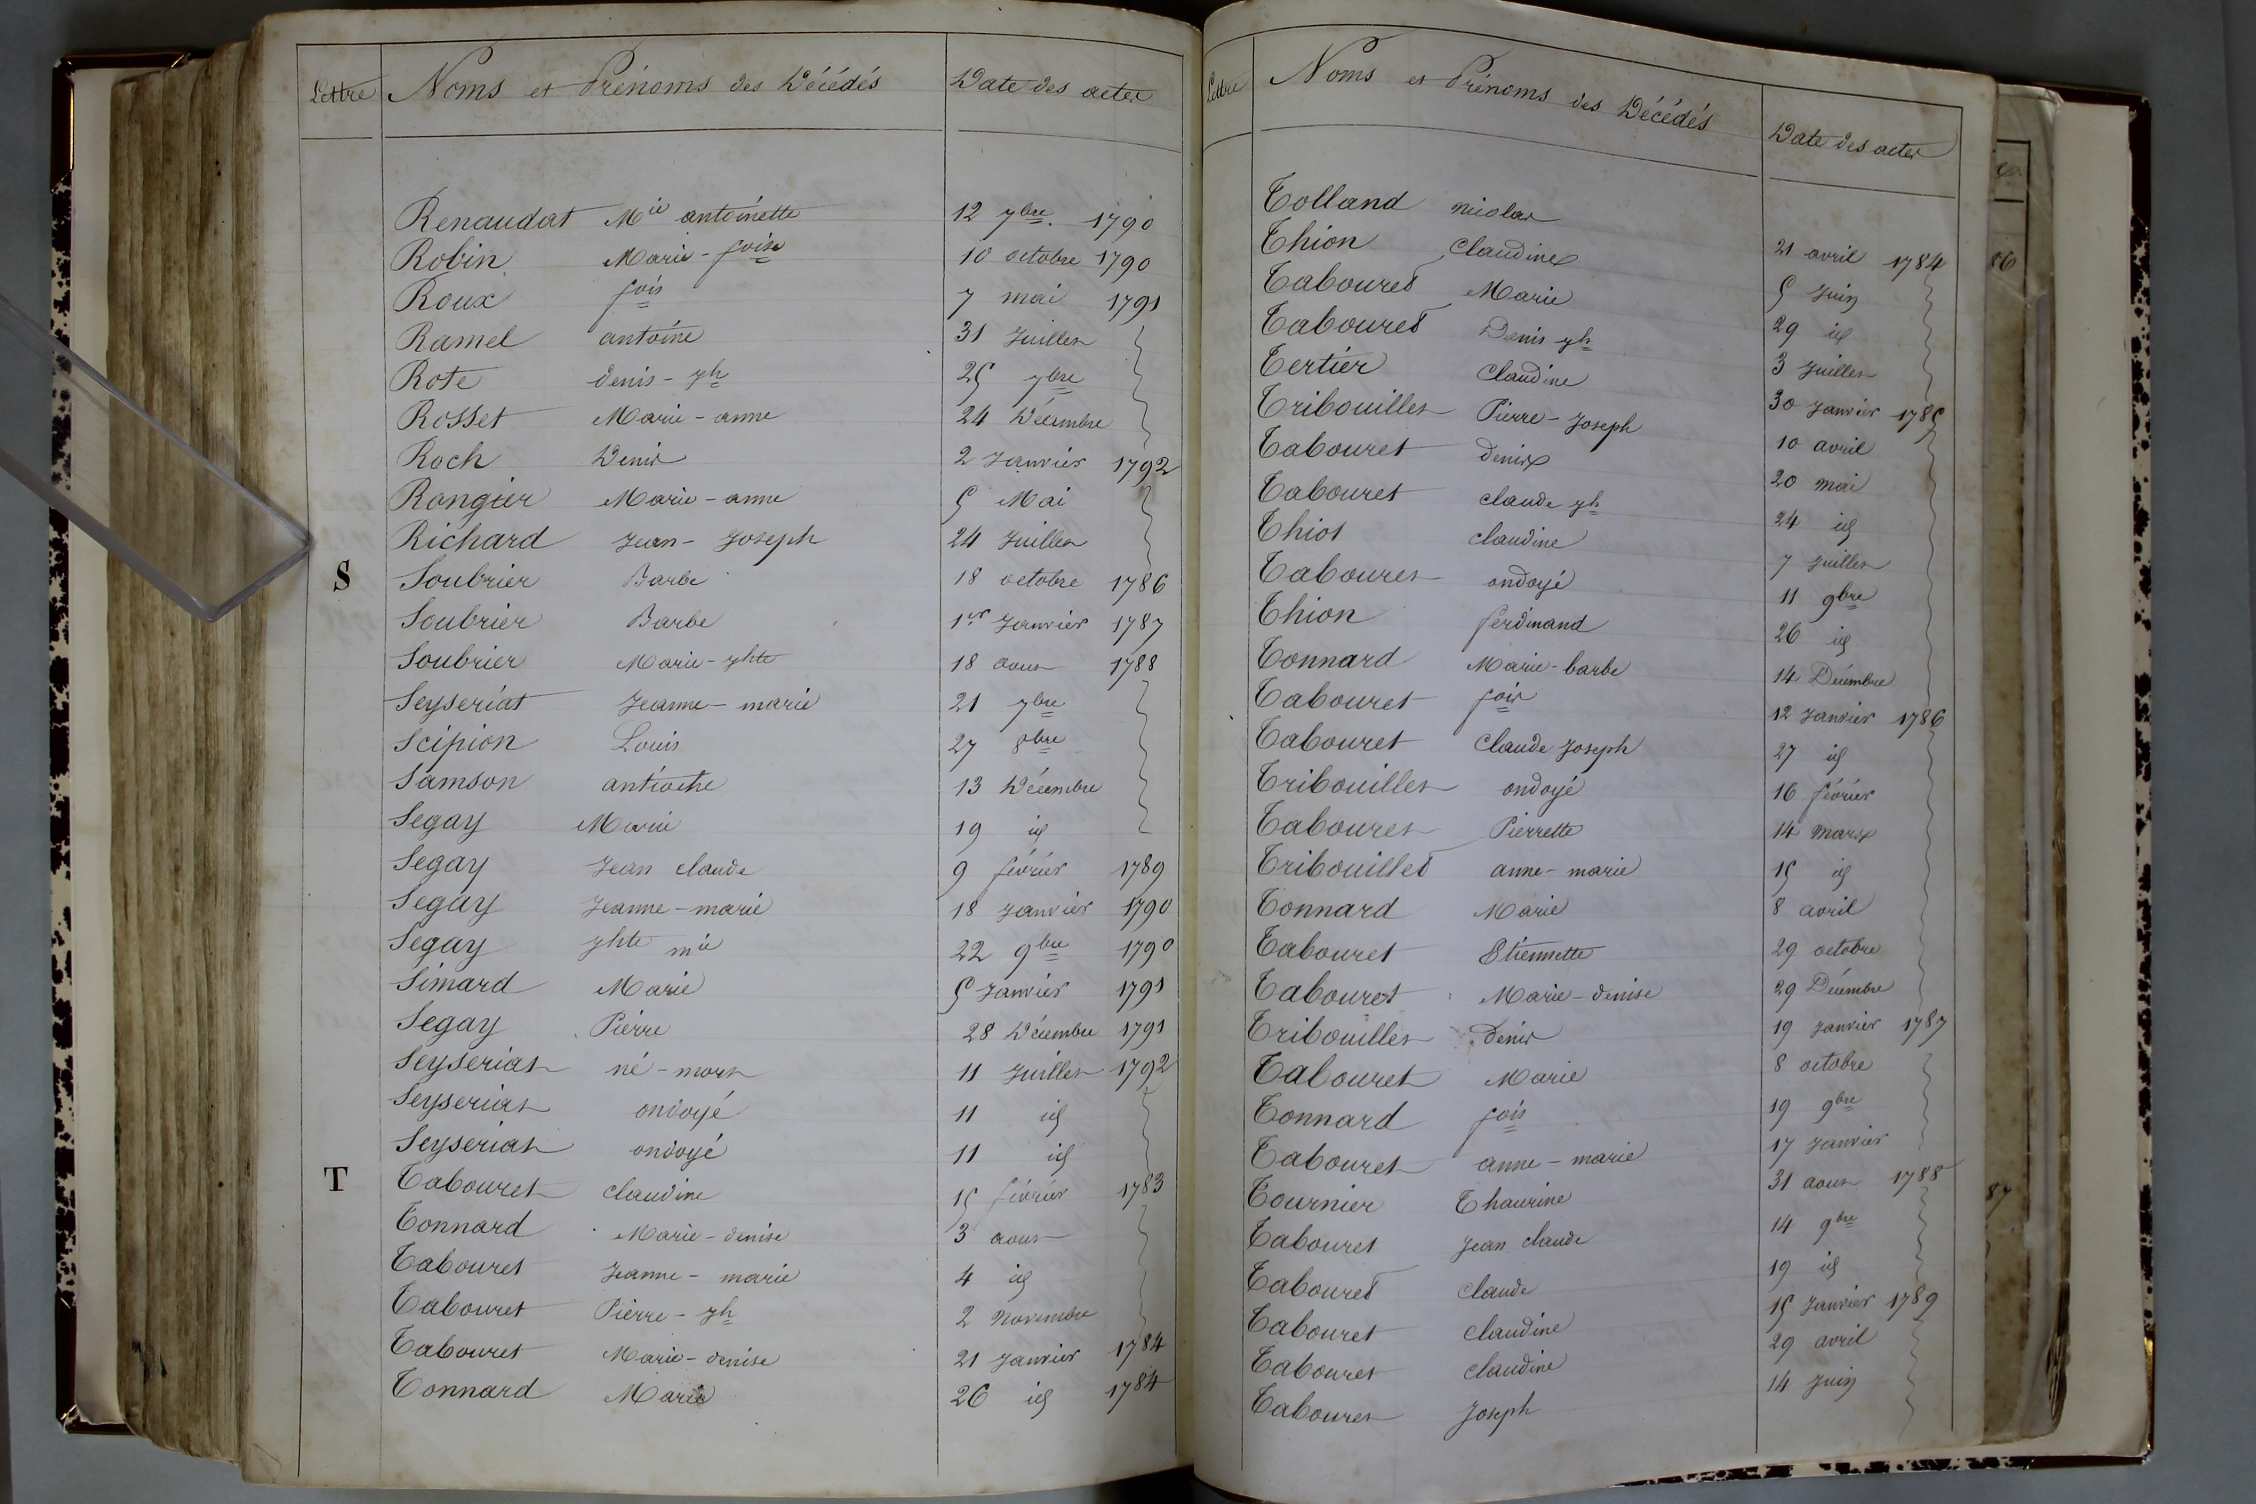 Lettre Noms et Prénoms des Décédés Date des actes
Renaudat Mie antoinette 12 7bre. 1790
Robin Marie - foise 10 octobre 1790
Roux fois 7 mai 1791
Ramel antoine 31 Juillet
Rote denis - jh 25 7bre
Rosset Marie - anne 24 Décembre
Roch Denis 2 Janvier 1792
Rongier Marie - anne 5 Mai
Richard Jean - Joseph 24 Juillet
S Soubrier Barbe 18 octobre 1786
Soubrier Barbe 1er Janvier 1787
Soubrier Marie - jhte 18 aout 1788
Seyseriat Jeanne - marie 21 7bre
Scipion Louis 27 8bre
Samson antioche 13 Décembre
Segay Marie 19 id
Segay Jean claude 9 février 1789
Segay Jeanne - marie 18 Janvier 1790
Segay jhte mie 22 9bre 1790
Simard Marie 5 Janvier 1791
Segay Pierre 28 Décembre 1791
Seyseriat né - mort 11 Juillet 1792
Seyseriat ondoyé 11 id
Seyseriat ondoyé 11 id
T Tabouret claudine 15 février 1783
Tonnard Marie - denise 3 aout
Tabouret Jeanne - marie 4 id
Tabouret Pierre - jh 2 Novembre
Tabouret Marie - denise 21 Janvier 1784
Tonnard Marie 26 id 1784
Lettre Noms et Prénoms des Décédés Date des actes
Tolland nicolas 21 avril 1784
Thion Claudine 5 Juin
Tabouret Marie 29 id
Tabouret Denis jh 3 Juillet
Tertier Claudine 30 Janvier 1785
Tribouillet Pierre - Joseph 10 avril
Tabouret denis 20 mai
Tabouret claude jh 24 id
Thiot claudine 7 Juillet
Tabouret ondoyé 11 9bre
Thion ferdinand 26 id
Tonnard Marie - barbe 14 Décembre
Tabouret fois 12 Janvier 1786
Tabouret Claude Joseph 27 id
Tribouillet ondoyé 16 février
Tabouret Pierrette 14 mars
Tribouillet anne - marie 15 id
Tonnard Marie 8 avril
Tabouret Etiennette 29 octobre
Tabouret Marie - denise 29 Décembre
Tribouillet Denis 19 Janvier 1787
Tabouret Marie 8 octobre
Tonnard fois 19 9bre
Tabouret anne - marie 17 Janvier
Tournier Thaurine 31 aout 1788
Tabouret Jean claude 14 9bre
Tabouret claude 19 id
Tabouret claudine 15 Janvier 1789
Tabouret claudine 29 avril
Tabouret Joseph 14 Juin
86
87